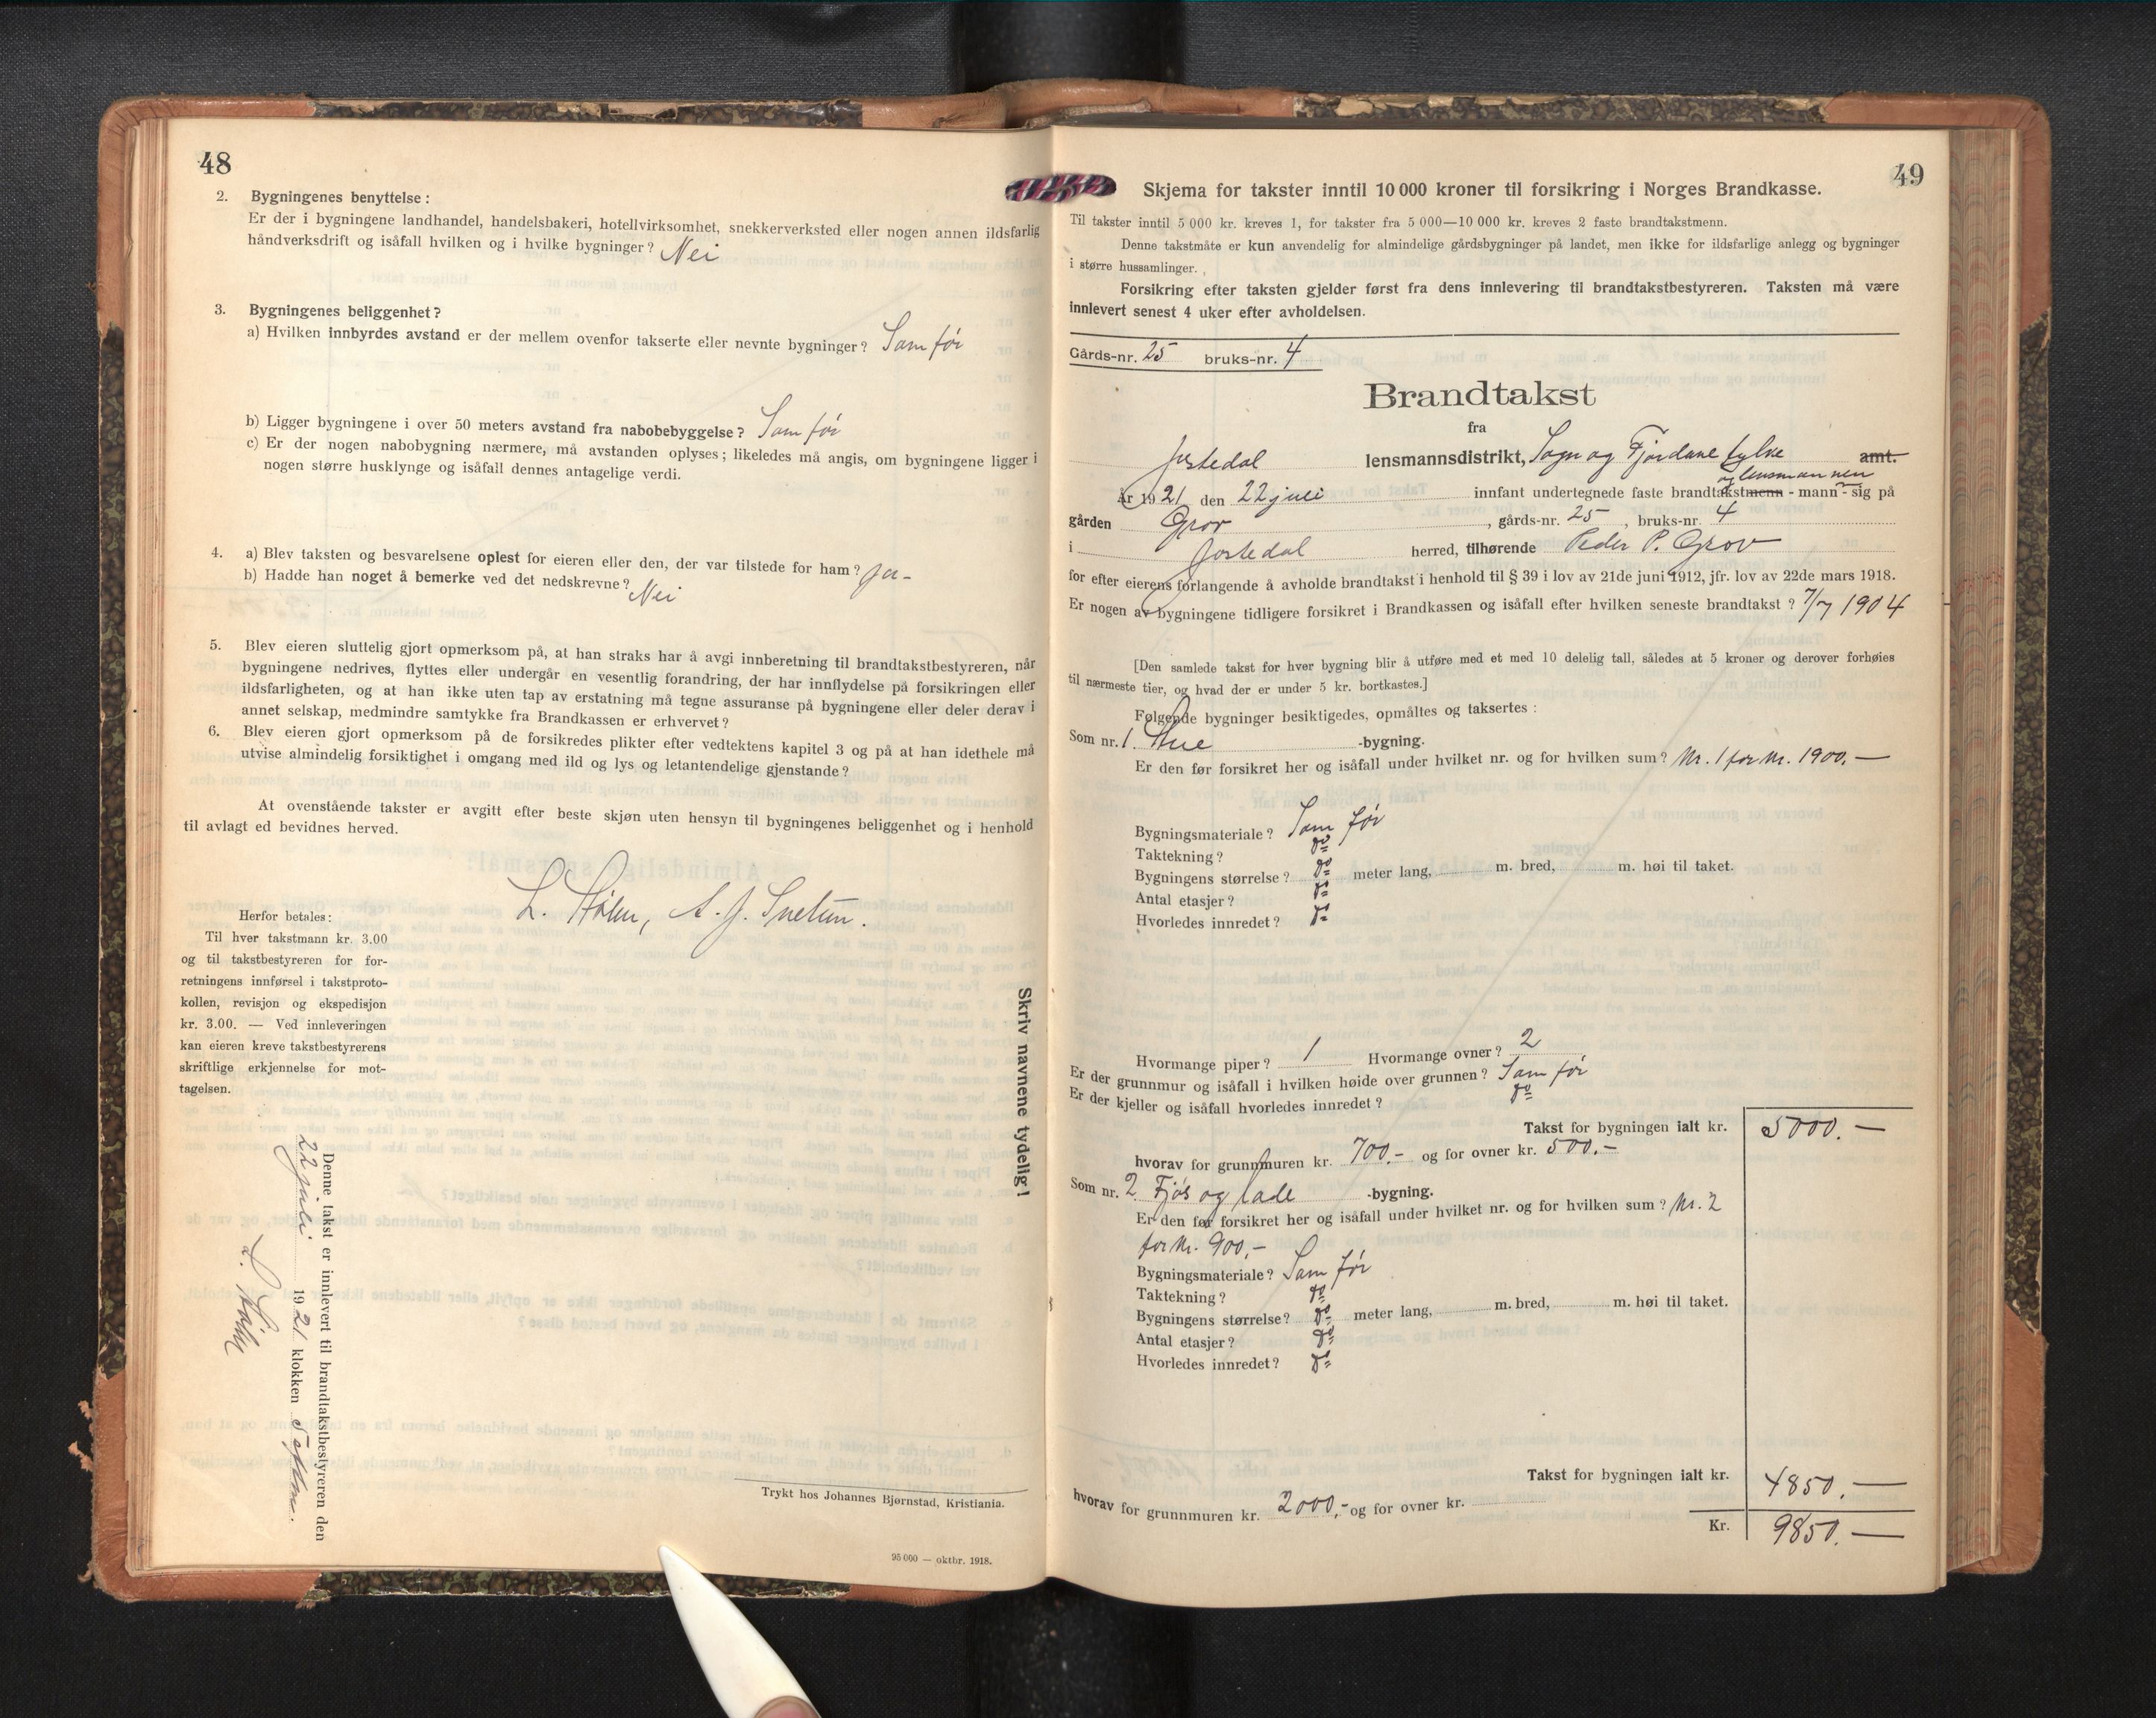 48
2. Bygningenes benyttelse:
Er der i bygningene landhandel, handelsbakeri, hotellvirksomhet, snekkerverksted eller nogen annen ildsfarlig
håndverksdrift og isåfall hvilken og i hvilke bygninger? Nei
3. Bygningenes beliggenhet?
a) Hvilken innbyrdes avstand er der mellem ovenfor takserte eller nevnte bygninger? Som før
b) Ligger bygningene i over 50 meters avstand fra nabobebyggelse? Som før
c) Er der nogen nabobygning nærmere, må avstanden oplyses; likeledes må angis, om bygningene ligger i
nogen større husklynge og isåfall dennes antagelige verdi.
4. a) Blev taksten og besvarelsene oplest for eieren eller den, der var tilstede for ham? Ja-
b) Hadde han noget å bemerke ved det nedskrevne? Nei
5. Blev eieren sluttelig gjort opmerksom på, at han straks har å avgi innberetning til brandtakstbestyreren, når
bygningene nedrives, flyttes eller undergår en vesentlig forandring, der har innflydelse på forsikringen eller
ildsfarligheten, og at han ikke uten tap av erstatning må tegne assuranse på bygningene eller deler derav i
annet selskap, medmindre samtykke fra Brandkassen er erhvervet?
6. Blev eieren gjort opmerksom på de forsikredes plikter efter vedtektens kapitel 3 og på at han idethele må
utvise almindelig forsiktighet i omgang med ild og lys og letantendelige gjenstande?
At ovenstående takster er avgitt efter beste skjøn uten hensyn til bygningenes beliggenhet og i henhold
til avlagt ed bevidnes herved.
L. Hølen, A. J. Snetun.
Herfor betales:
Til hver takstmann kr. 3.00
og til takstbestyreren for for-
retningens innførsel i takstproto-
kollen, revisjon og ekspedisjon
kr. 3.00. — Ved innleveringen
kan eieren kreve takstbestyrerens
skriftlige erkjennelse for mot-
tagelsen.
Skriv navnene tydelig!
Denne takst er innlevert til brandtakstbestyreren den
22 juli 1921 klokken 5 eftm.
Trykt hos Johannes Bjørnstad, Kristiania.
95 000 — oktbr. 1918.
49
Skjema for takster inntil 10 000 kroner til forsikring i Norges Brandkasse.
Til takster inntil 5 000 kr. kreves 1, for takster fra 5 000—10 000 kr. kreves 2 faste brandtakstmenn.
Denne takstmåte er kun anvendelig for almindelige gårdsbygninger på landet, men ikke for ildsfarlige anlegg og bygninger
i større hussamlinger.
Forsikring efter taksten gjelder først fra dens innlevering til brandtakstbestyreren. Taksten må være
innlevert senest 4 uker efter avholdelsen.
Gårds-nr. 25 bruks-nr. 4
Brandtakst
fra
Jostedal lensmannsdistrikt, Sogn og Fjordane fylke amt.
og lensmannen
År 1921 den 22 juli innfant undertegnede faste brandtakstmenn - mann - sig på
gården Grov, gårds-nr. 25, bruks-nr. 4
i Jostedal herred, tilhørende Peder P. Grov
for efter eierens forlangende å avholde brandtakst i henhold til § 39 i lov av 21de juni 1912, jfr. lov av 22de mars 1918.
Er nogen av bygningene tidligere forsikret i Brandkassen og isåfall efter hvilken seneste brandtakst? 7/7 1904
[Den samlede takst for hver bygning blir å utføre med et med 10 delelig tall, således at 5 kroner og derover forhøies
til nærmeste tier, og hvad der er under 5 kr. bortkastes.]
Følgende bygninger besiktigedes, opmåltes og taksertes:
Som nr. 1. Stue -bygning.
Er den før forsikret her og isåfall under hvilket nr. og for hvilken sum? Nr. 1 for kr. 1900.—
Bygningsmateriale? Som før
Taktekning? do
Bygningens størrelse? do meter lang, m. bred, m. høi til taket.
Antal etasjer? do
Hvorledes innredet? do
Hvormange piper? 1 Hvormange ovner? 2
Er der grunnmur og isåfall i hvilken høide over grunnen? Som før
Er der kjeller og isåfall hvorledes innredet? do
Takst for bygningen ialt kr. 5000.—
hvorav for grunnmuren kr. 700.- og for ovner kr. 500.-
Som nr. 2. Fjøs og lade -bygning.
Er den før forsikret her og isåfall under hvilket nr. og for hvilken sum? Nr. 2
for kr. 900.-
Bygningsmateriale? Som før
Taktekning? do
Bygningens størrelse? do meter lang, m. bred, m. høi til taket.
Antal etasjer? do
Hvorledes innredet? do
Takst for bygningen ialt kr. 4850.—
hvorav for grunnmuren kr. 2000,- og for ovner kr.
Kr. 9850.—